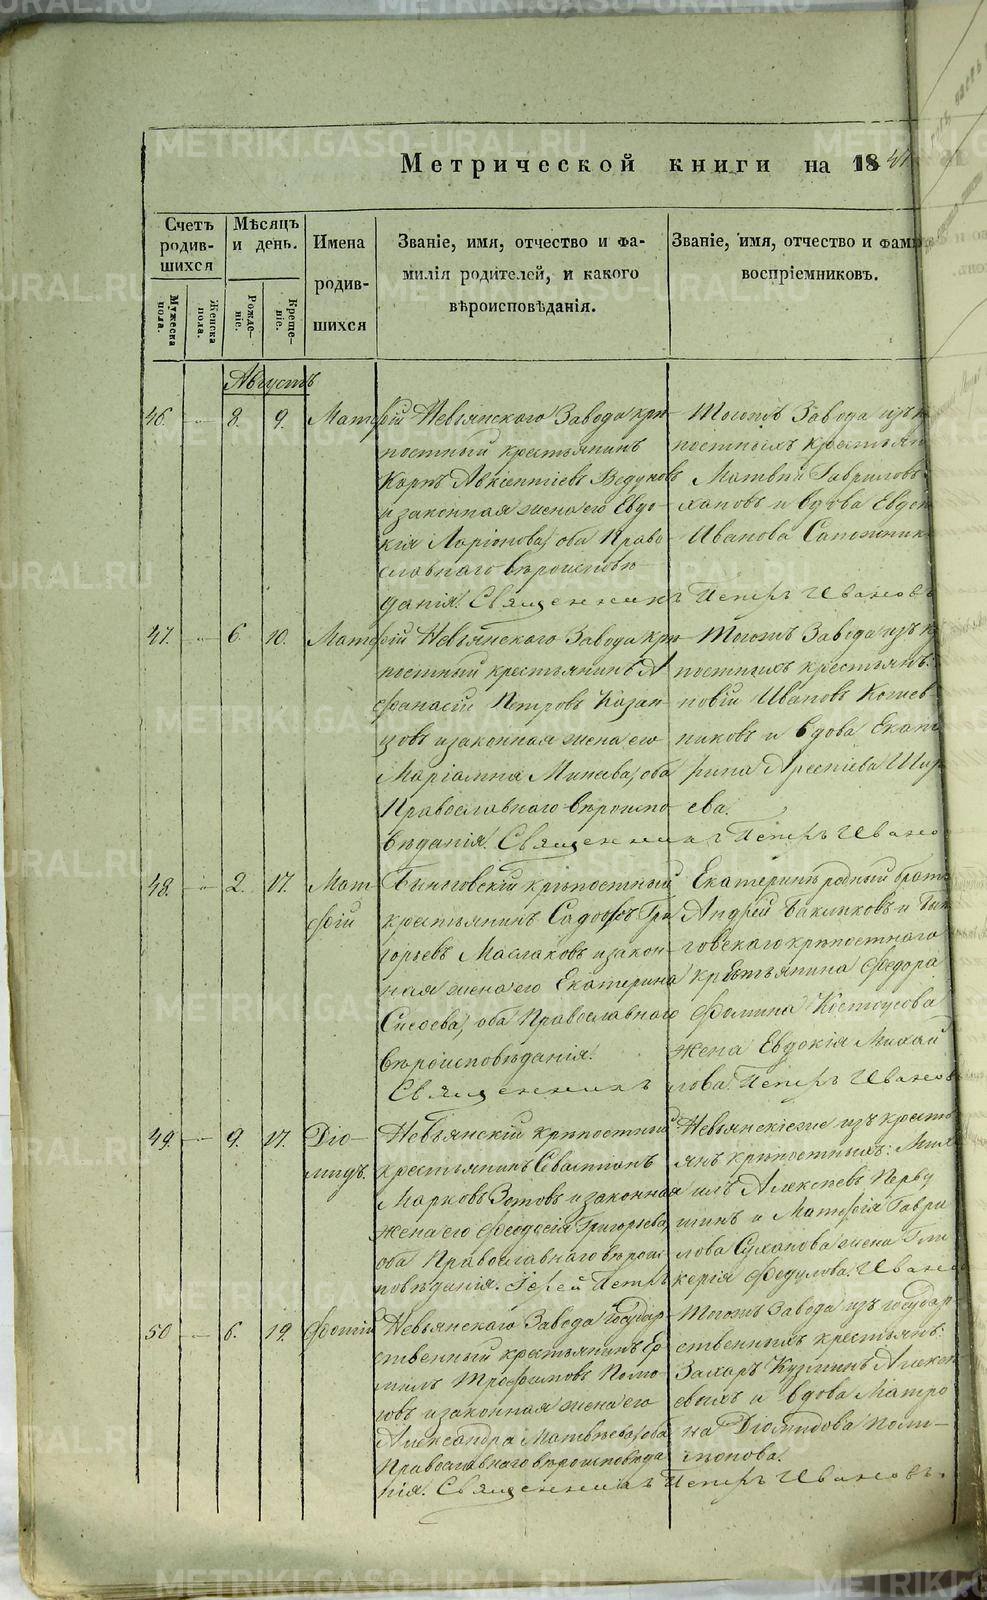 METRIKI.GASO-URAL.RU
Метрической книги на 18
Счетъ родившихся
Мужеска пола.
Женска пола.
Мѣсяцъ и день.
Рожденіе.
Крещеніе.
Имена родившихся
Званіе, имя, отчество и фамилія родителей, и какого вѣроисповѣданія.
Званіе, имя, отчество и фам
воспріемниковъ.
Августъ
46. 8. 9. Матфій
Невьянскаго Завода крѣ
постный крестьянинъ
Карпъ Авксентіевъ
и законная жена его Евдо
кія Ларіонова, оба Право
славнаго вѣроисповѣ
данія.
Тогожъ Завода изъ
постныхъ крестьян
Матвѣй Гавриловъ
хановъ и вдова Евдок
Иванова Сапожник
Священникъ Петръ Ивановъ
47. 6. 10. Матфій
Невьянскаго Завода крѣ
постный крестьянинъ А
фанасій Петровъ Казан
цовъ и законная жена его
Маріамна Минеева, оба
Православнаго вѣроиспо
вѣданія.
Тогожъ Завода изъ к
постныхъ крестьянъ:
повій Ивановъ Кожев
никовъ и вдова Екате
рина Арсеніева Шир
ева.
Священникъ Петръ Ивано
48. 2. 17. Мат
фій
Быньговскій крѣпостный
крестьянинъ Садофъ Гри
горьевъ Маслаковъ и закон
ная жена его Екатерина
Сысоева, оба Православнаго
вѣроисповѣданія.
Екатеринѣ родный братъ
Андрей Баклыковъ и Бын
говскаго крѣпостнаго
крестьянина Федора
Фомина Костоусова
жена Евдокія Михай
лова.
Священникъ Петръ Ивановъ
49. 9. 17. Діо-
мидъ.
Невьянскій крѣпостный
крестьянинъ Севастіанъ
Марковъ Зотовъ и законная
жена его Феодосія Григорьева,
оба Православнаго вѣроис
повѣданія. Іерей Петръ
Невьянскіе изъ кресть
янъ крѣпостныхъ: Миха
илъ Алексѣевъ Перву
шинъ и Матфія Гаври
лова Суханова жена Гли
керія Федулова. Иванов
50 6. 19. Фотій
Невьянскаго Завода Государ
ственный крестьянинъ Ер
милъ Трофимовъ
и законная жена его
Александра Матвѣева, оба
Православнаго вѣроисповѣда
нія.
Тогожъ Завода изъ государ
ственныхъ крестьянъ:
Захаръ Кузминъ Алексѣ
евыхъ и вдова Матро
на Діомидова
Священникъ Петръ Ивановъ.